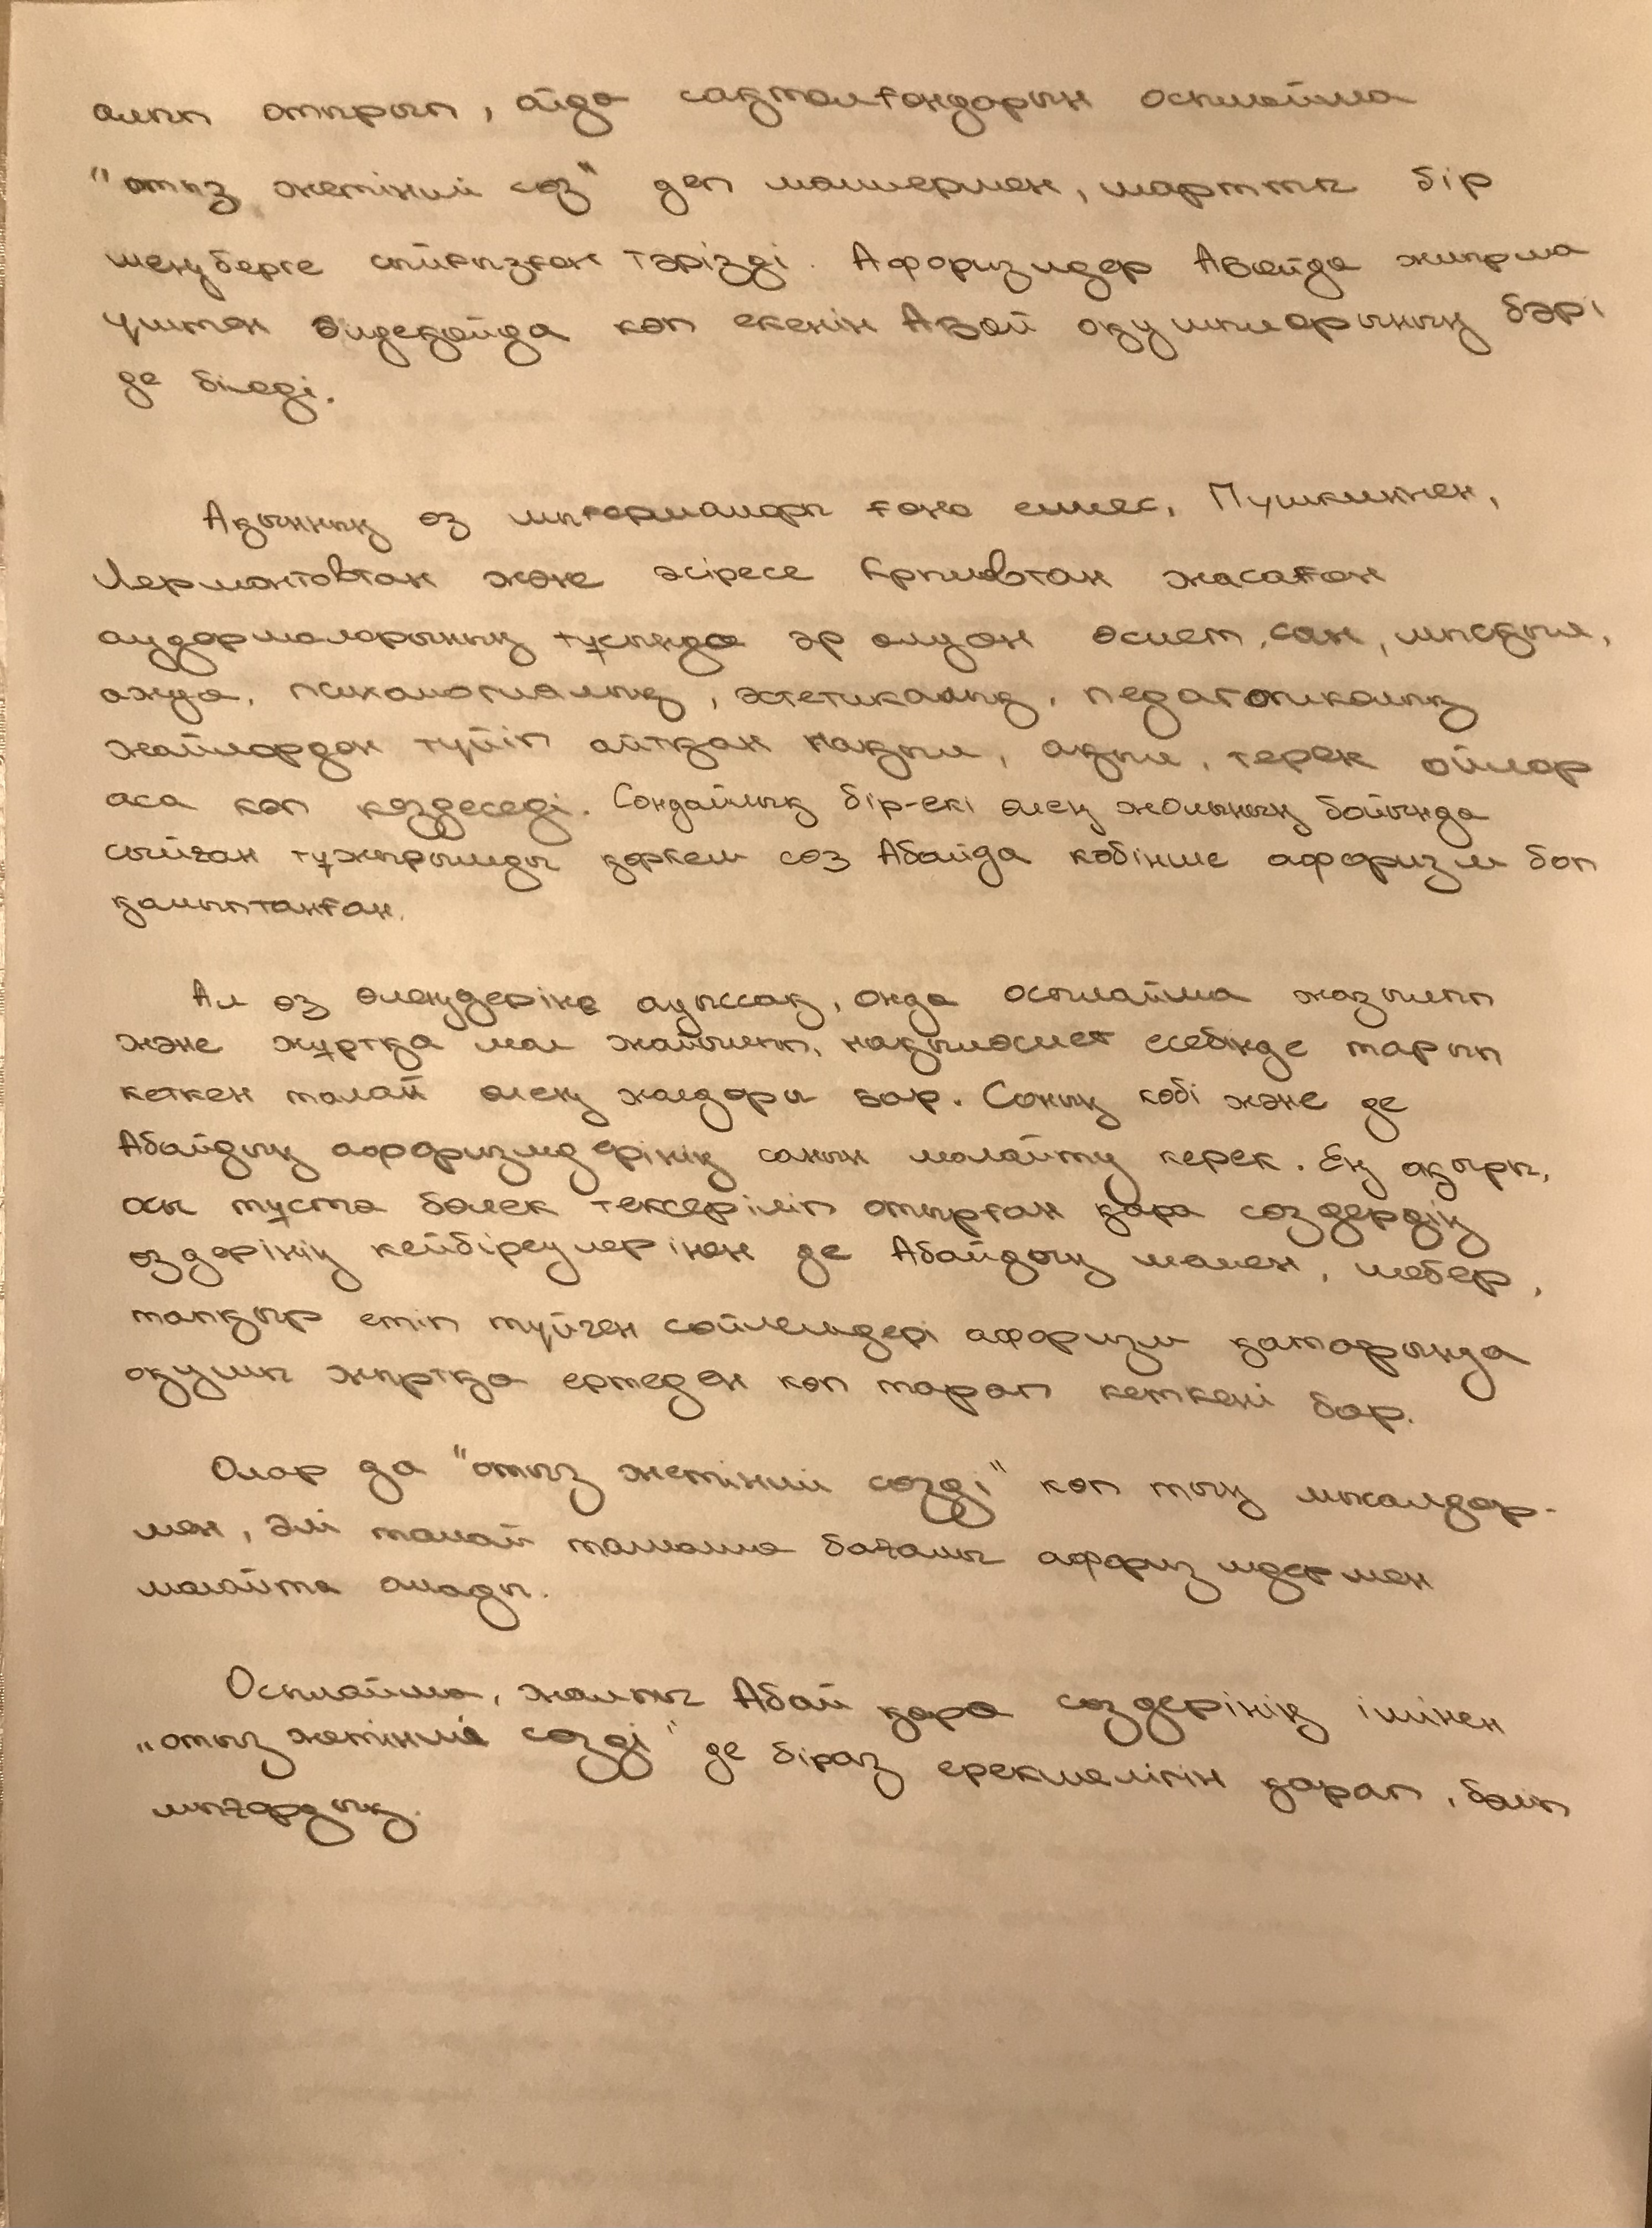 алып отырып, ойда сақталғандарын осылайша
"отыз жетінші сөз" деп мөлшермен, шартты бір
шеңберге сыйғызған тәрізді. Афоризмдер Абайда жиырма
үштен әлдеқайда көп екенін Абай оқушыларының бәрі
де біледі.
Ақынның өз шығармалары ғана емес, Пушкиннен,
Лермонтовтан және әсіресе Крыловтан жасаған
аудармаларының тұсында әр алуан өсиет, сын, мысқыл,
ажуа, психологиялық, эстетикалық, педагогикалық
жайлардан түйіп айтқан нақыл, ақыл, терең ойлар
аса көп кездеседі. Сондайлық бір-екі өлең жолының бойында
сыйған тұжырымды көркем сөз Абайда көбінше афоризм боп
қалыптанған.
Ал өз өлеңдеріне ауыссақ, онда осылайша жазылып
және жұртқа мол жайылып, нақылөсиет есебінде тарап
кеткен талай өлең жолдары бар. Соның көбі және де
Абайдың афоризмдерінің санын молайту керек. Ең ақыры,
осы тұста бөлек тексеріліп отырған қара сөздердің
өздерінің кейбіреулерінен де Абайдың шешен, шебер,
тапқыр етіп түйген сөйлемдері афоризм қатарында
оқушы жұртқа ертеден көп тарап кеткені бар.
Олар да "отыз жетінші сөзді" көп тың мысалдар-
мен, әлі талай тамаша бағалы афоризмдермен
молайта алады.
Осылайша, жалпы Абай қара сөздерінің ішінен
"отыз жетінші сөзді" де біраз ерекшелігін қарап, бөліп
шығардық.